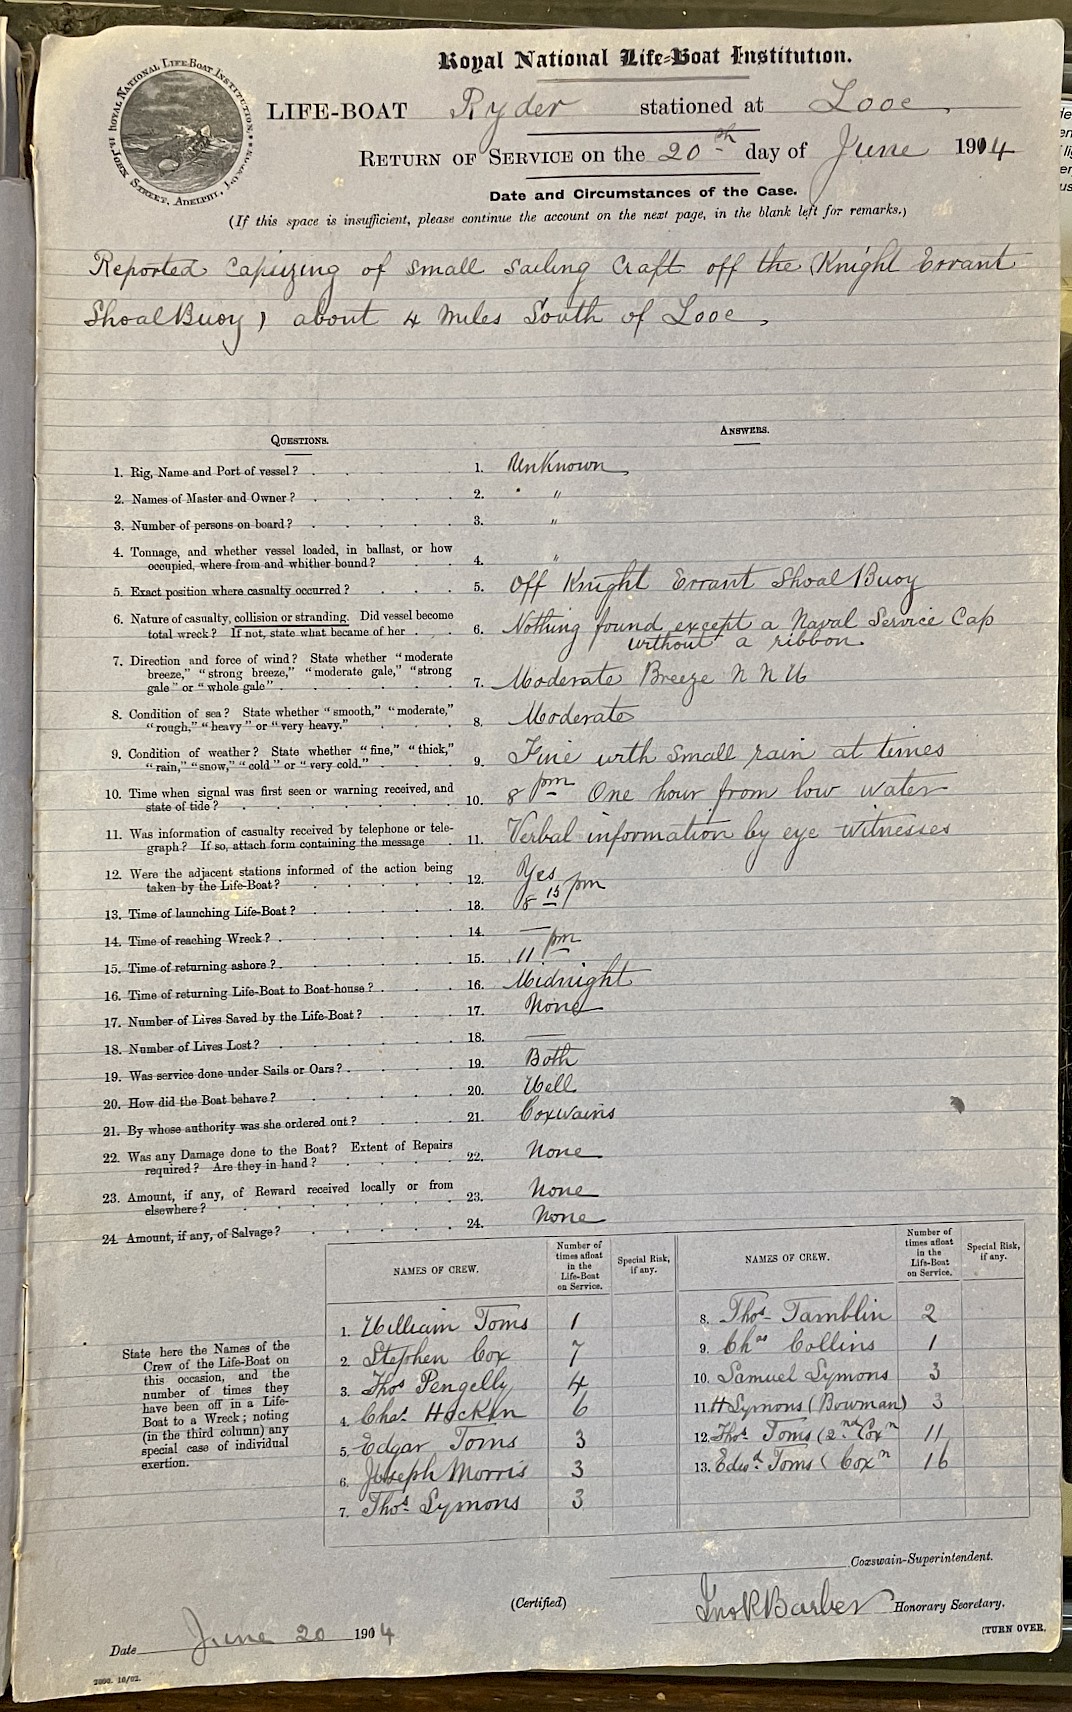 Royal National Life-Boat Institution.
ROYAL NATIONAL LIFE-BOAT INSTITUTION,
JOHN STREET, ADELPHI, LONDON.
LIFE-BOAT Ryder stationed at Looe,
RETURN OF SERVICE on the 20th day of June 1904
Date and Circumstances of the Case.
(If this space is insufficient, please continue the account on the next page, in the blank left for remarks.)
Reported Capsizing of small sailing Craft off the (Knight Errant
Shoal Buoy) about 4 miles South of Looe,
QUESTIONS. ANSWERS.
1. Rig, Name and Port of vessel? 1. Unknown,
2. Names of Master and Owner? 2. "
3. Number of persons on board? 3. "
4. Tonnage, and whether vessel loaded, in ballast, or how
occupied, where from and whither bound? 4. "
5. Exact position where casualty occurred? 5. Off Knight Errant Shoal Buoy
6. Nature of casualty, collision or stranding. Did vessel become
total wreck? If not, state what became of her 6. Nothing found except a Naval Service Cap
without a ribbon.
7. Direction and force of wind? State whether "moderate
breeze," "strong breeze," "moderate gale," "strong
gale" or "whole gale" 7. Moderate Breeze N N W
8. Condition of sea? State whether "smooth," "moderate,"
"rough," "heavy" or "very heavy." 8. Moderate
9. Condition of weather? State whether "fine," "thick,"
"rain," "snow," "cold" or "very cold." 9. Fine with small rain at times
10. Time when signal was first seen or warning received, and
state of tide? 10. 8 pm One hour from low water
11. Was information of casualty received by telephone or tele-
graph? If so, attach form containing the message 11. Verbal information by eye witnesses
12. Were the adjacent stations informed of the action being
taken by the Life-Boat? 12. Yes
13. Time of launching Life-Boat? 13. 8 15 pm
14. Time of reaching Wreck? 14. —
15. Time of returning ashore? 15. 11 pm
16. Time of returning Life-Boat to Boat-house? 16. Midnight
17. Number of Lives Saved by the Life-Boat? 17. None
18. Number of Lives Lost? 18. —
19. Was service done under Sails or Oars? 19. Both
20. How did the Boat behave? 20. Well
21. By whose authority was she ordered out? 21. Coxwains
22. Was any Damage done to the Boat? Extent of Repairs
required? Are they in hand? 22. None
23. Amount, if any, of Reward received locally or from
elsewhere? 23. None
24. Amount, if any, of Salvage? 24. None
State here the Names of the
Crew of the Life-Boat on
this occasion, and the
number of times they
have been off in a Life-
Boat to a Wreck; noting
(in the third column) any
special case of individual
exertion.
NAMES OF CREW. Number of times afloat in the Life-Boat on Service. Special Risk, if any.
1. William Toms 1
2. Stephen Cox 7
3. Thos Pengelly 4
4. Chas. Hockin 6
5. Edgar Toms 3
6. Joseph Morris 3
7. Thos Symons 3
NAMES OF CREW. Number of times afloat in the Life-Boat on Service. Special Risk, if any.
8. Thos Tamblin 2
9. Chas Collins 1
10. Samuel Symons 3
11. H Symons (Bowman) 3
12. Thos Toms (2nd Coxn 11
13. Edwd Toms (Coxn 16
Coxswain-Superintendent.
(Certified) Jno R Barber Honorary Secretary.
Date June 20 1904
[TURN OVER.
2000. 10/02.